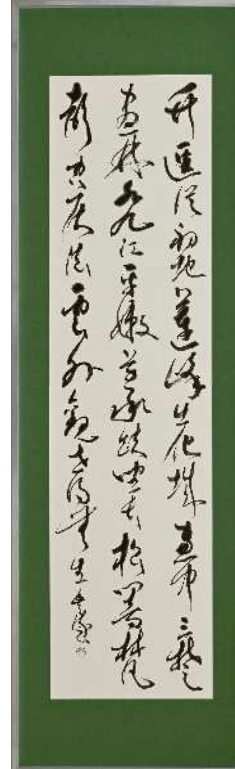 竹逕從初地蓮峰出化城窗中三楚
盡林九江平嫩草承趺坐長松響梵
聲空居法雲外觀世得無生